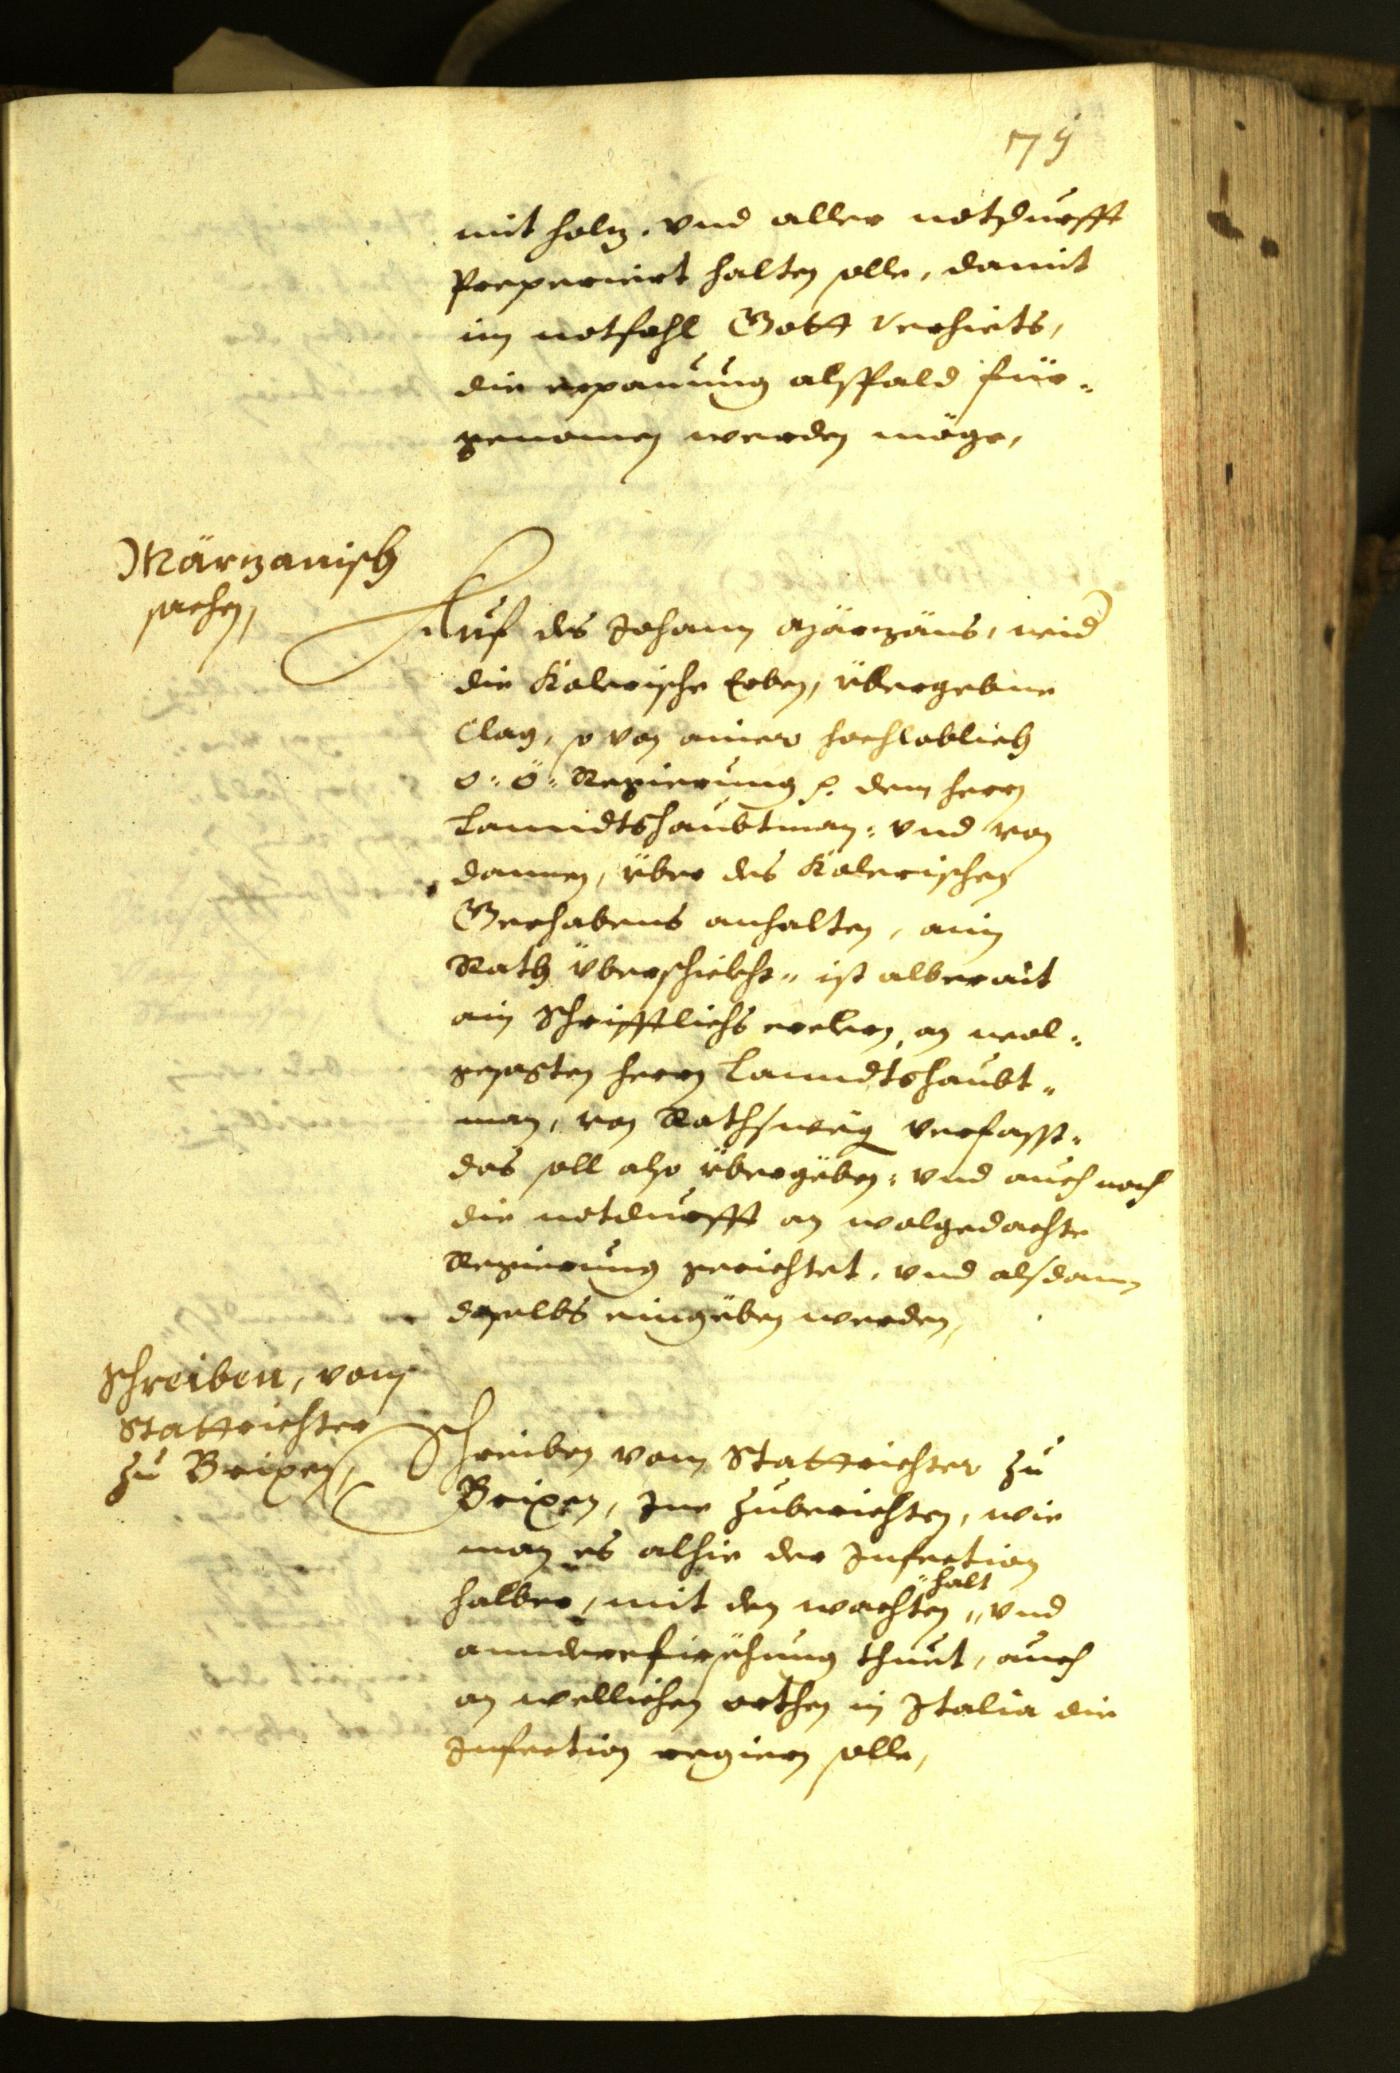 79
mit holz, vnd aller notdurfft
Preperiert halten solle, damit
im notfahl Gott Verhiets,
die erpauung alspald für-
genomen werden möge,
Märzanisch
sachen,
Auf des Johann Märzäns, wid
die Kolerische Erben, übergebne
Clag, so von ainer hochloblich
o: ö: Regierung p. dem herrn
Lanndtshaubtman: vnd von
dannen, über des Kolerischen
Gerhabens anhalten, ain
Rath überschickht" ist alberait
ain Schrifftlichs an wol-
gesagten herrn Lanndtshaubt-
man, von Rathsweg verfasst,
das soll also übergëben: vnd auch nach
die notdurfft an wolgedachte
Regierung gerichtet, vnd alsdann
daselbs eingëben werden,
Schreiben, vom
Stattrichter
zu Brixen,
Schreiben vom Stattrichter zu
Brixen, Ine zuberichten, wie
man es alhie der Infection
halt
halber, mit den wachten " vnd
annderefürsëhung thuet, auch
an wellichen orthen in Italia die
Infection regiern solle,